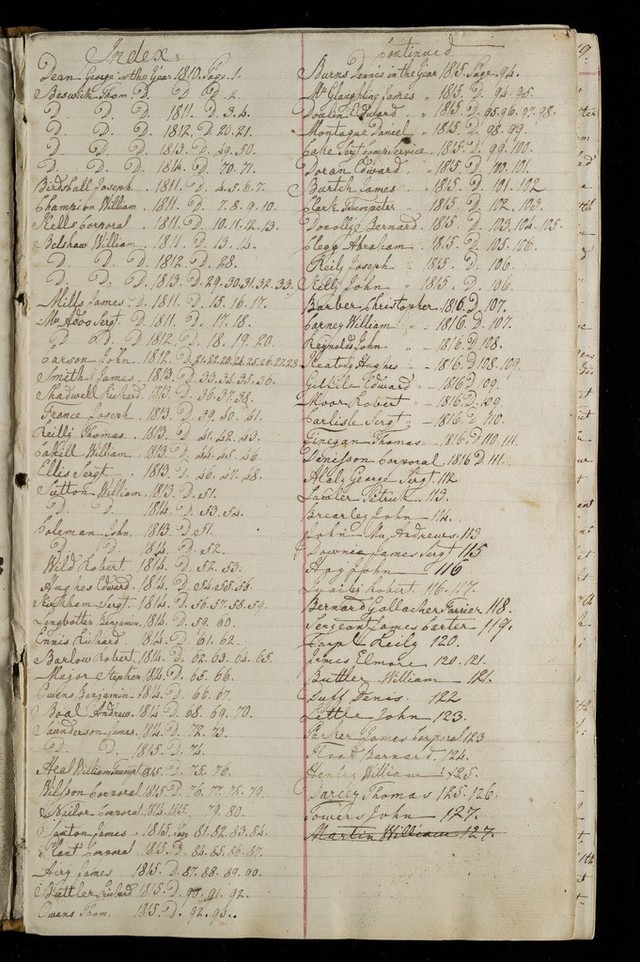 Index
Dean George in the Year 1810. Page 1.
Beswick Thom. D. D. D 2.
D. D. D. 1811. D. 3.4.
D. D. 1812. D. 20.21.
D. D. 1813. D. 49.50.
D. D. D. 1814. D. 70.71.
Birdshall Joseph. 1811. D. 4.5.6.7.
Champion William. 1811. D. 7.8.9.10.
Kells Corporal. 1811. D. 10.11.12.13.
Belshaw William. 1811. D. 13.14.
D. D. D. 1812. D. 28.
D. D. D. 1813. D. 29.30.31.32.33.
Mills James. D. 1811. D. 15.16.17.
Mc Adoo Sergt. D. 1811. D. 17.18.
D. D. D. 1812. D. 18.19.20.
Carson John 1812. D. 21.22.23.24.25.26.27.28
Smith James. 1813. D. 33.34.35.36.
Shadwell Richard. 1813. D. 36.37.38.
France Joseph. 1813. D. 39.40.41.
Reilli Thomas. 1813. D. 41.42.43.
Cahill William 1813. D. 44.45.46.
Ellis Sergt. 1813. D. 46.47.48.
Sutton William. 1813. D. 51.
D. D. 1814. D. 53.54.
Coleman John. 1813. D. 51.
D. D. 1814. D. 52.
Wild Robert 1814. D. 52.53.
Hughes Edward. 1814. D. 54.55.56.
Kirkham Sergt. 1814. D. 56.57.58.59.
Longbottor Benjamin. 1814. D. 59.60.
Ennis Richard. 1814. D. 61.62.
Barlow Robert. 1814. D. 62.63.64.65.
Major Stephen. 1814. D. 65.66.
Owens Benjamin. 1814. D. 66.67.
Boal Andrew. 1814. D. 68.69.70.
Saunderson James. 1814. D. 72.73.
D. D. 1815. D. 74.
Heal William Trumpt 1815. D. 75.76.
Wilson Corporal 1815. D. 76.77.78.79.
Nailor Corporal. 1814. 1815. 79.80.
Stanton James. 1815. 81.82.83.84.
Plant Corporal. 1815. D. 84.85.86.87.
Airy James 1815. D. 87.88.89.90.
Buttler Richard 1815. D. 90.91.92.
Owens Thom. 1815. D. 92.93.
Continued
Burns Dennis in the Year 1815. Page. 94.
Mc Glaughling James " 1815. D. 94.95.
Doulin Edward " 1815. D. 95.96.97.98.
Montague Daniel " 1815. D. 98.99.
Cake Sergt Comp Service. 1815. D. 99.100.
Doran Edward. " 1815. D. 100.101.
Burtch James. " 1815. D. 101.102
Clark Trumpeter 1815. D. 102.103.
Donolly Bernard. 1815. D. 103.104.105.
Clegg Abraham 1815. D. 105.106.
Reily Joseph " 1815. D. 106.
Reily John " 1815. D. 106.
Barber Christopher. 1816. D. 107.
Carney William " 1816. D. 107.
Reynolds John " 1816. D. 108.
Keating Hughes " 1816. D. 108.109.
Edward " 1816. D. 109.
Moor Robert " 1816. D. 109
Carlisle Sergt " 1816. D. 110.
Finegan Thomas " 1816. D. 110.111.
Denisson Corporal 1816. D. 111.
Healy George Sergt. 112
Lawler Patrick 113.
Brearley John 114.
John Mc Andrews. 113
Downie James Sergt 115
Hoy John 116
Robert 116.117.
Bernard Gollacher Farier 118.
Sergeant James Carter 119.
Corpl Reily 120.
James Elmore 120.121.
Buttler William 121.
Duff Denis 122
Little John 123.
Parker James Corporal 123
Root Barnard. 124.
Henley William 125.
Darcey Thomas 125.126.
Towers John 127.
Martin William 127.